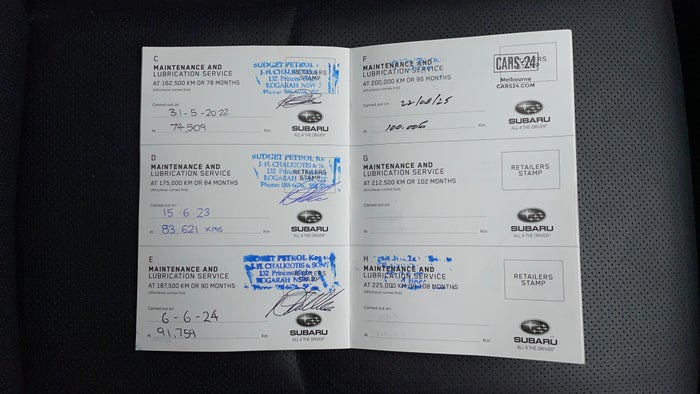 C
MAINTENANCE AND
LUBRICATION SERVICE
AT 162,500 KM OR 78 MONTHS
(Whichever comes first)
BUDGET PETROL
J.H. CHALKIOTIS
132 Princes
KOGARAH NSW 2
Carried out on:
31-5-2022
At 74,509 Km
SUBARU
ALL 4 THE DRIVER
D
MAINTENANCE AND
LUBRICATION SERVICE
AT 175,000 KM OR 84 MONTHS
(Whichever comes first)
BUDGET PETROL
J.H. CHALKIOTIS & SO
132 Princes
RETAILERS
STAMP
KOGARAH
Phone: 588
Carried out on:
15-6-23
At 83,621 KMS Km
SUBARU
ALL 4 THE DRIVER
E
MAINTENANCE AND
LUBRICATION SERVICE
AT 187,500 KM OR 90 MONTHS
(Whichever comes first)
BUDGET PETROL
J.H. CHALKIOTIS & SONS
132 Princes
KOGARAH NSW
Carried out on:
6-6-24
At 91,759 Km
SUBARU
ALL 4 THE DRIVER
F
MAINTENANCE AND
LUBRICATION SERVICE
AT 200,000 KM OR 96 MONTHS
(Whichever comes first)
CARS24
Melbourne
CARS24.COM
Carried out on:
22/08/25
At 100,006 Km
SUBARU
ALL 4 THE DRIVER
G
MAINTENANCE AND
LUBRICATION SERVICE
AT 212,500 KM OR 102 MONTHS
(Whichever comes first)
RETAILERS
STAMP
Carried out on:
At Km
SUBARU
ALL 4 THE DRIVER
H
MAINTENANCE AND
LUBRICATION SERVICE
AT 225,000 KM OR 108 MONTHS
(Whichever comes first)
RETAILERS
STAMP
Carried out on:
At Km
SUBARU
ALL 4 THE DRIVER